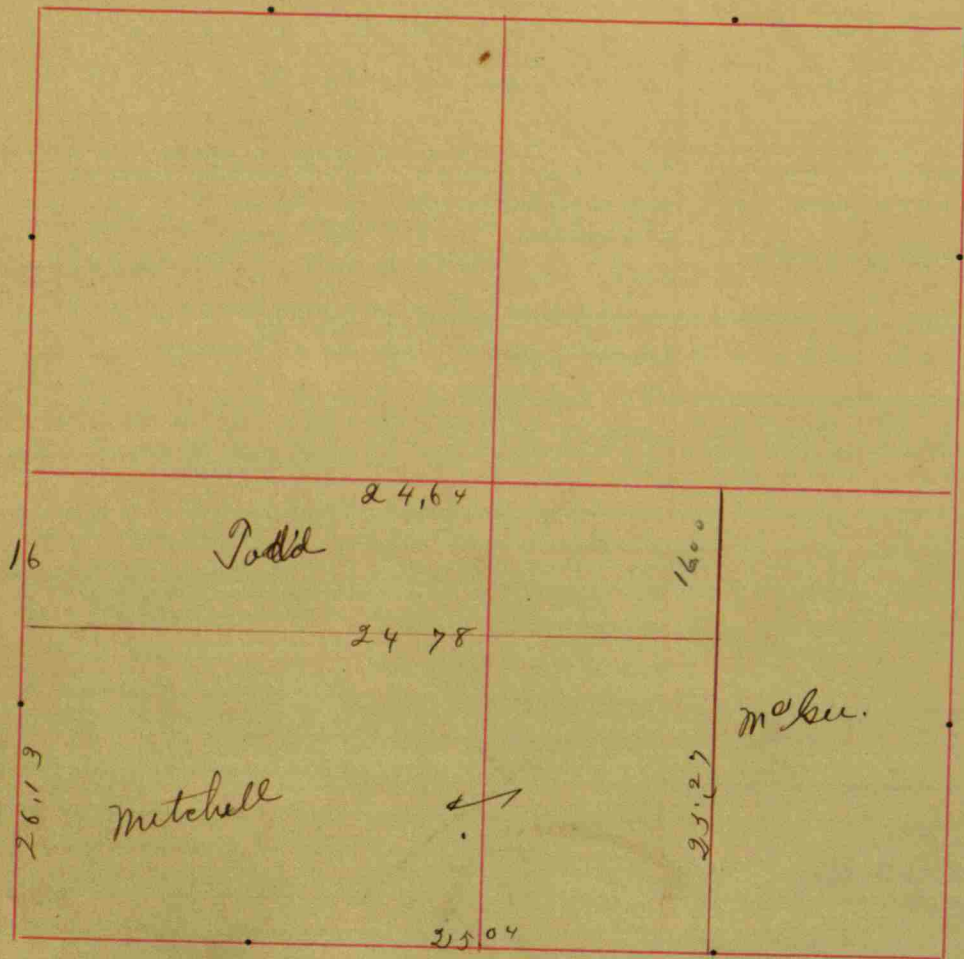 24,64
16
Todd
1600
24 78
McGee.
26,13
Mitchell
25,27
25 04